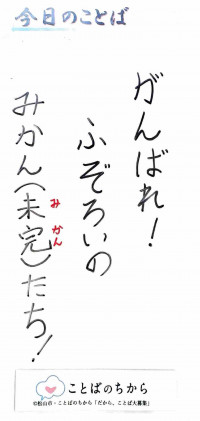 今日のことば
がんばれ！
ふぞろいの
みかん(未完)たち！
み
かん
ことばのちから
©松山市・ことばのちから「だから、ことば大募集」